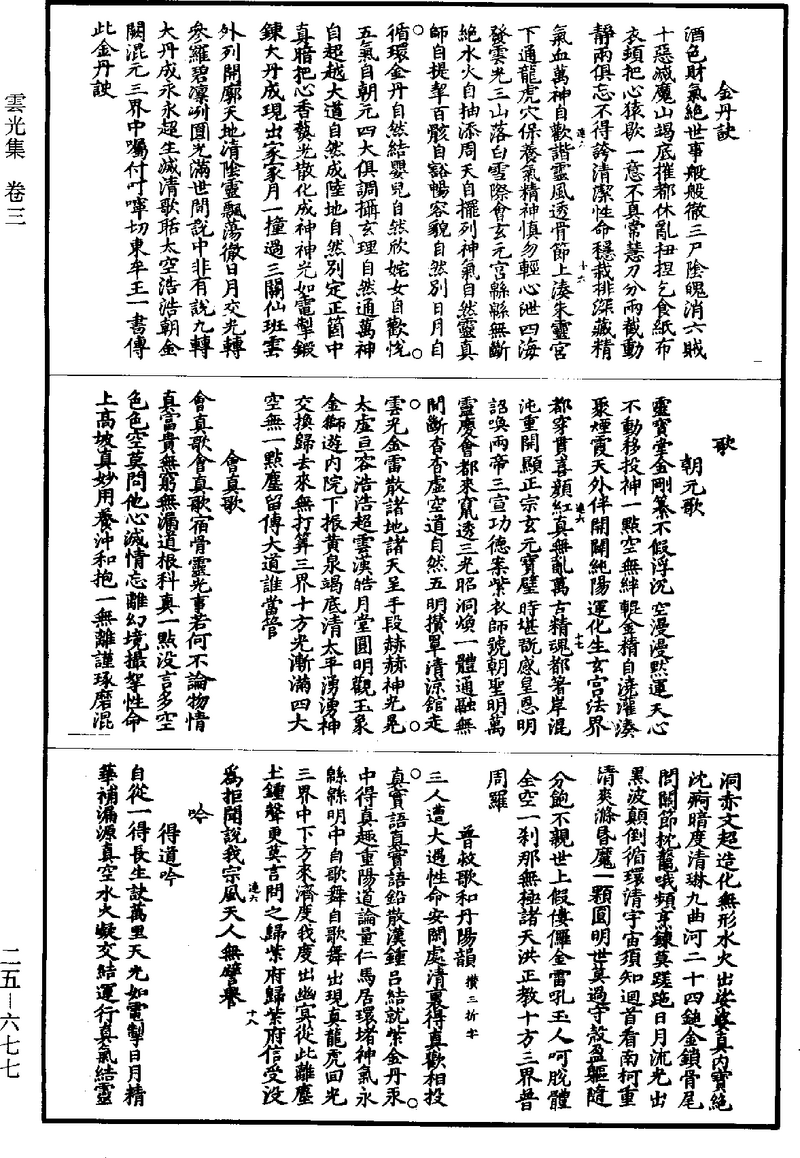 金丹訣
酒色財氣絕世事般般徹三尸陰魄消六賊
十惡滅魔山竭底摧都休亂扭捏乞食紙布
衣頻把心猿歇一意不真常慧刀分兩截動
靜兩俱忘不得誇清潔性命穩裁排深藏精
氣血萬神自歡諧靈風透骨節上湊朱靈宮
下通龍虎穴保養氣精神慎勿輕心泄四海
發雲光三山落白雪際會玄元宮緜緜無斷
絕水火自抽添周天自擺列神氣自然靈真
師自提挈百骸自谿暢容貌自然別日月自
循環金丹自然結嬰兒自然欣姹女自歡悅
五氣自朝元四大俱調攝玄理自然通萬神
自超越大道自然成陸地自然別定正箇中
真暗把心香爇光散化成神神光如電掣鍛
鍊大丹成現出家家月一撞過三關仙班雲
外列開廓天地清陰靈飄蕩徹日月交光轉
參羅碧凜冽圓光滿世間說中非有說九轉
大丹成永永超生滅清歌聒太空浩浩朝金
闕混元三界中囑付叮嚀切東牟王一書傳
此金丹訣
歌
朝元歌
靈寶堂金剛纂不假浮沉空漫漫默運天心
不動移投神一點空無絆輥金精自澆灌湊
聚煙霞天外伴開闢純陽運化生玄宮法界
都穿貫喜顏紅真無亂萬古精魂都著岸混
沌重開顯正宗玄元寶璧時堪翫感皇恩明
詔喚兩帝三宣功德案紫衣師號朝聖明萬
靈慶會都來竄透三光昭洞煥一體通融無
間斷杳杳虛空道自然五明攢罩清涼館走
雲光金雷散諸地諸天呈手段赫赫神光晃
太虛亘容浩浩超雲漢皓月堂圓明觀玉象
金獅遊內院下振黃泉竭底清太平湧湧神
交換歸去來無打筭三界十方光漸滿四大
空無一點塵留傳大道誰當管
會真歌
會真歌會真歌宿骨靈光事若何不論物情
真富貴無窮無漏道根科真一點沒言多空
色色空莫問他心滅情忘離幻境撮拏性命
上高坡真妙用養沖和抱一無離謹琢磨混
洞赤文超造化無形水火出娑婆真內寶絕
沈痾暗度清琳九曲河二十四鎚金鎖骨尾
閭關節枕鼇哦頻烹鍊莫蹉跎日月流光出
黑波顛倒循環清宇宙須知迴首看南柯重
清爽滌昏魔一顆圓明世莫過守殼盈軀隨
分飽不親世上假僂儸金雷吼玉人呵脫體
全空一剎那無極諸天洪正教十方三界普
周羅
普救歌和丹陽韻 攢三拆字
三人遭大遇性命安閑處清裏得真歡相投
真實語真實語鉛散漢鍾呂結就紫金丹汞
中得真趣重陽道論量仁馬居環堵神氣永
緜緜明中自歌舞自歌舞出現真龍虎回光
三界中下方來濟度我度出幽冥從此離塵
土鍾聲更莫言問之歸紫府歸紫府信受没
為拒聞說我宗風天人無譬舉
吟
得道吟
自從一得長生訣萬里天光如電掣日月精
華補漏源真空水火凝交結運行真氣結靈
雲光集 卷三
二五—六七七